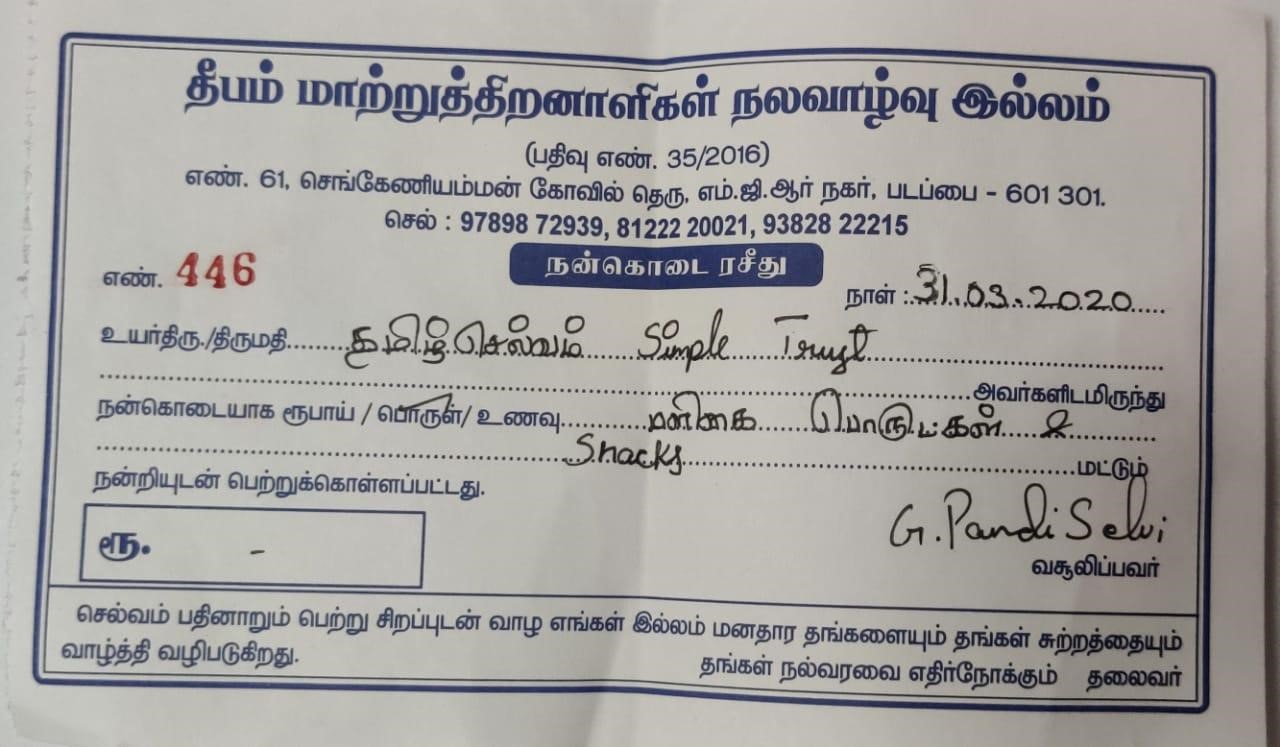 தீபம் மாற்றுத்திறனாளிகள் நலவாழ்வு இல்லம்
(பதிவு எண். 35/2016)
எண். 61, செங்கேணியம்மன் கோவில் தெரு, எம்.ஜி.ஆர் நகர், படப்பை - 601 301.
செல் : 97898 72939, 81222 20021, 93828 22215
நன்கொடை ரசீது
எண். 446
நாள் : 31.03.2020
உயர்திரு./திருமதி தமிழ்செல்வம் Simple Trust
அவர்களிடமிருந்து
நன்கொடையாக ரூபாய் / பொருள்/ உணவு மளிகை பொருட்கள் &
Snacks மட்டும்
நன்றியுடன் பெற்றுக்கொள்ளப்பட்டது.
ரூ. -
G. Pandi Selvi
வசூலிப்பவர்
செல்வம் பதினாறும் பெற்று சிறப்புடன் வாழ எங்கள் இல்லம் மனதார தங்களையும் தங்கள் சுற்றத்தையும்
வாழ்த்தி வழிபடுகிறது. தங்கள் நல்வரவை எதிர்நோக்கும் தலைவர்